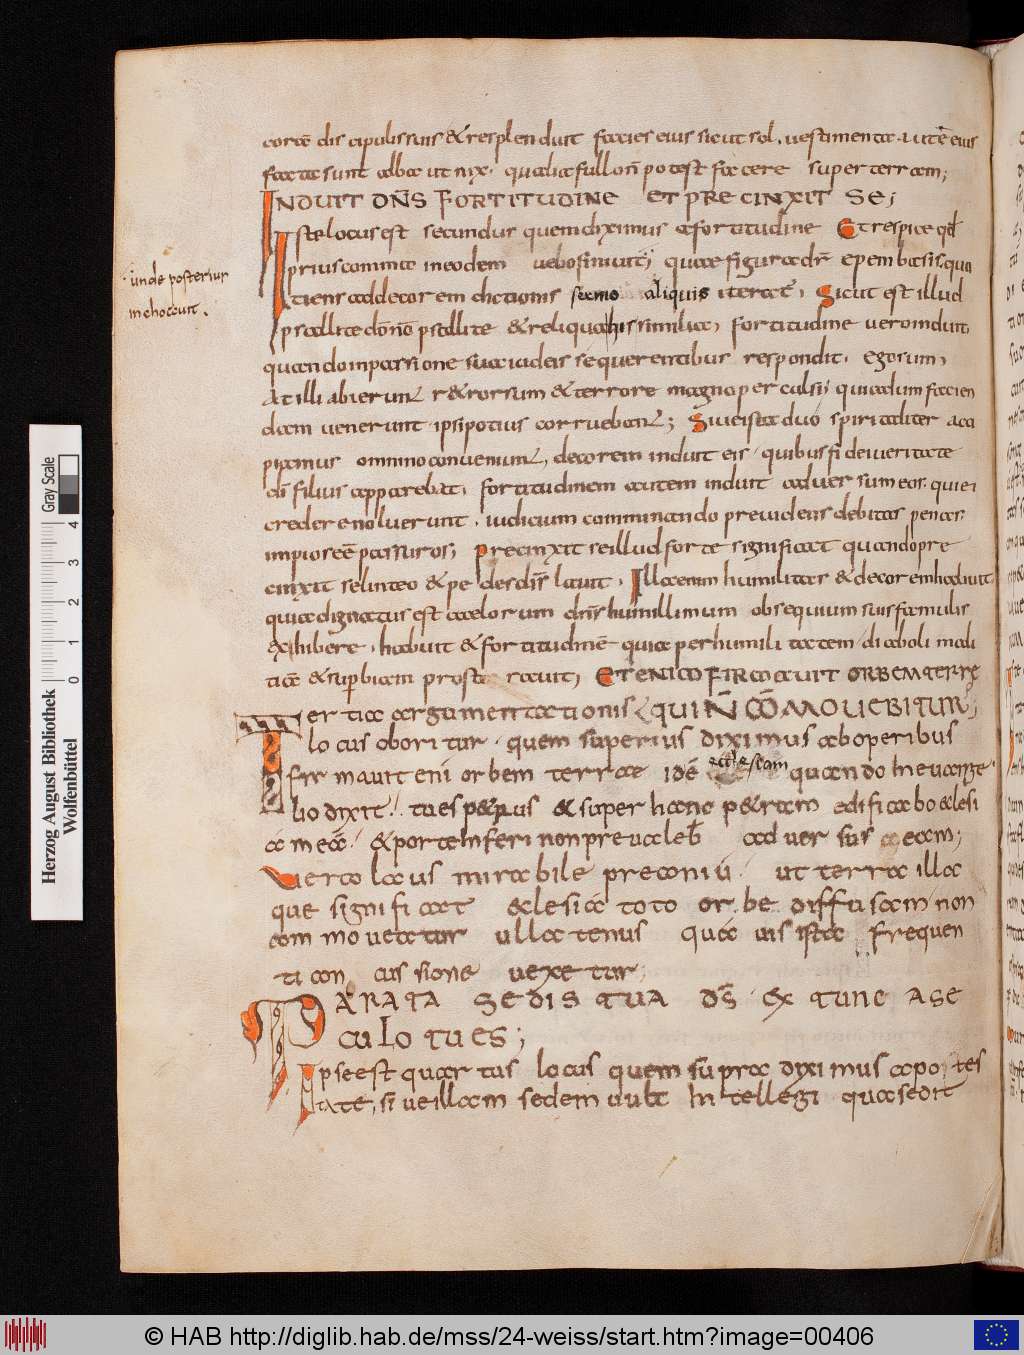 coră discipulis suis & resplenduit facies eius sicut sol. uestimenta autē eius
facta sunt alba ut nix. qualia fullon̄ potest facere super terram;
INDUIT DN̄S FORTITUDINE ET PRECINXIT SE;
Iste locus est secundus quem diximus a fortitudine Et respice qđ
prius comma in eodem uebo finiuit; quae figura dr̄ epembasis. quo
tiens ad decorem dictionis sermo aliquis iterat̄. Sicut est illud
psallite dōno psallite & reliqua his similia, fortitudine uero induit,
quando in passione sua iudeis se querentibus respondit. ego sum,
At illi abierunt r&rorsum & terrore magno perculsi; qui ad um facien
dam uenerunt ipsi potius corruebant; Siue ista duo spiritaliter acci
piamus omnino conueniunt, decorem induit eis quibus fidei ueritate
dī filius apparebat, fortitudinem autem induit aduersum eos. qui ei
credere noluerunt. iudicium comminando preuidens debitas penas
impios eē passuros; precinxit se illud forte significat quando pre
cinxit se linteo & pedes dis̄ lauit. Illa enim humilitas & decorem habuit
quia dignatus est caelorum dn̄s humillimum obsequium suis famulis
exhibere. habuit & fortitudinē quia per humilitatem diaboli mali
tiā & sup̄biam prostrauit; ETENIM FIRMAUIT ORBEM TERRE
· unde posterius
inchoauit .
Tertia argumentationis QUI N̄ CŌMOUEBITUR;
locus oboritur. quem superius diximus ab operibus
firmauit enī orbem terrae idē ecclesiam quando in euange
lio dixit. tu es p&rus & super hanc p&ram edificabo eclesi
ā meā. & porte inferi non preualeb̄ aduersus eam;
uerto locus mirabile preconiū. ut terra illa
que significat eclesiā toto orbe diffusam non
commoueatur ullatenus quauis ista frequen
ti concussione uexetur;
PARATA SEDIS TUA DS̄ EX TUNC A SE
CULO TU ES;
Ipse est quartus locus quem supra diximus a potes
tate, siue illam sedem uult intellegi qua sedit
Herzog August Bibliothek
Wolfenbüttel
Gray Scale
0 1 2 3 4
© HAB http://diglib.hab.de/mss/24-weiss/start.htm?image=00406